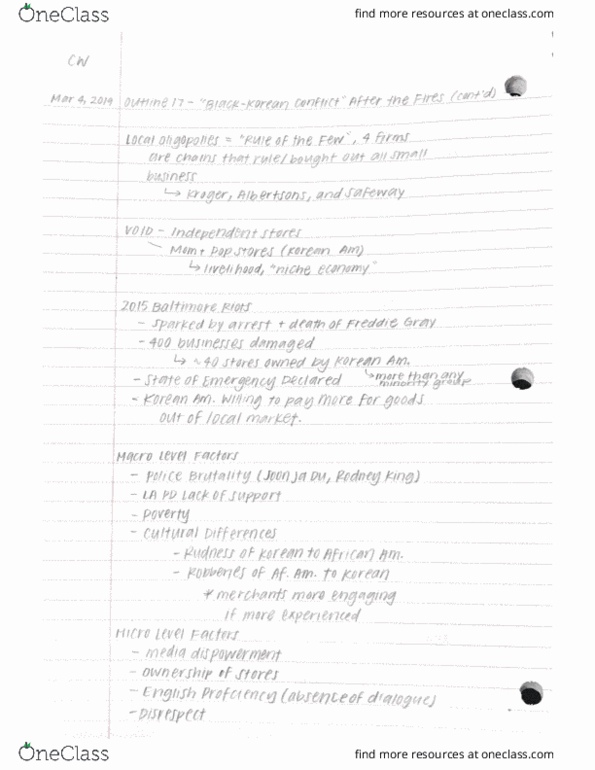 OneClass
find more resources at oneclass.com
CW
Mar 4, 2019 Outline 17 - "Black-Korean Conflict" After the Fires (cont'd)
Local oligopolies = "Rule of the Few", 4 firms
are chains that rule/bought out all small
business
↳ Kroger, Albertsons, and Safeway
VOID - Independent stores
Mom + Pop stores (Korean Am)
↳ livelihood, "niche economy"
2015 Baltimore Riots
- Sparked by arrest + death of Freddie Gray
- 400 businesses damaged
↳ ~40 stores owned by Korean Am.
↳ more than any
minority group
- State of Emergency Declared
- Korean Am. willing to pay more for goods
out of local market.
Macro Level Factors
- Police Brutality (Soon Ja Du, Rodney King)
- LA PD Lack of support
- Poverty
- Cultural Differences
- Rudness of Korean to African Am.
- Robberies of Af. Am. to Korean
* merchants more engaging
if more experienced
Micro Level Factors
- media dispowerment
- ownership of stores
- English Proficiency (absence of dialogue)
- Disrespect
OneClass
find more resources at oneclass.com